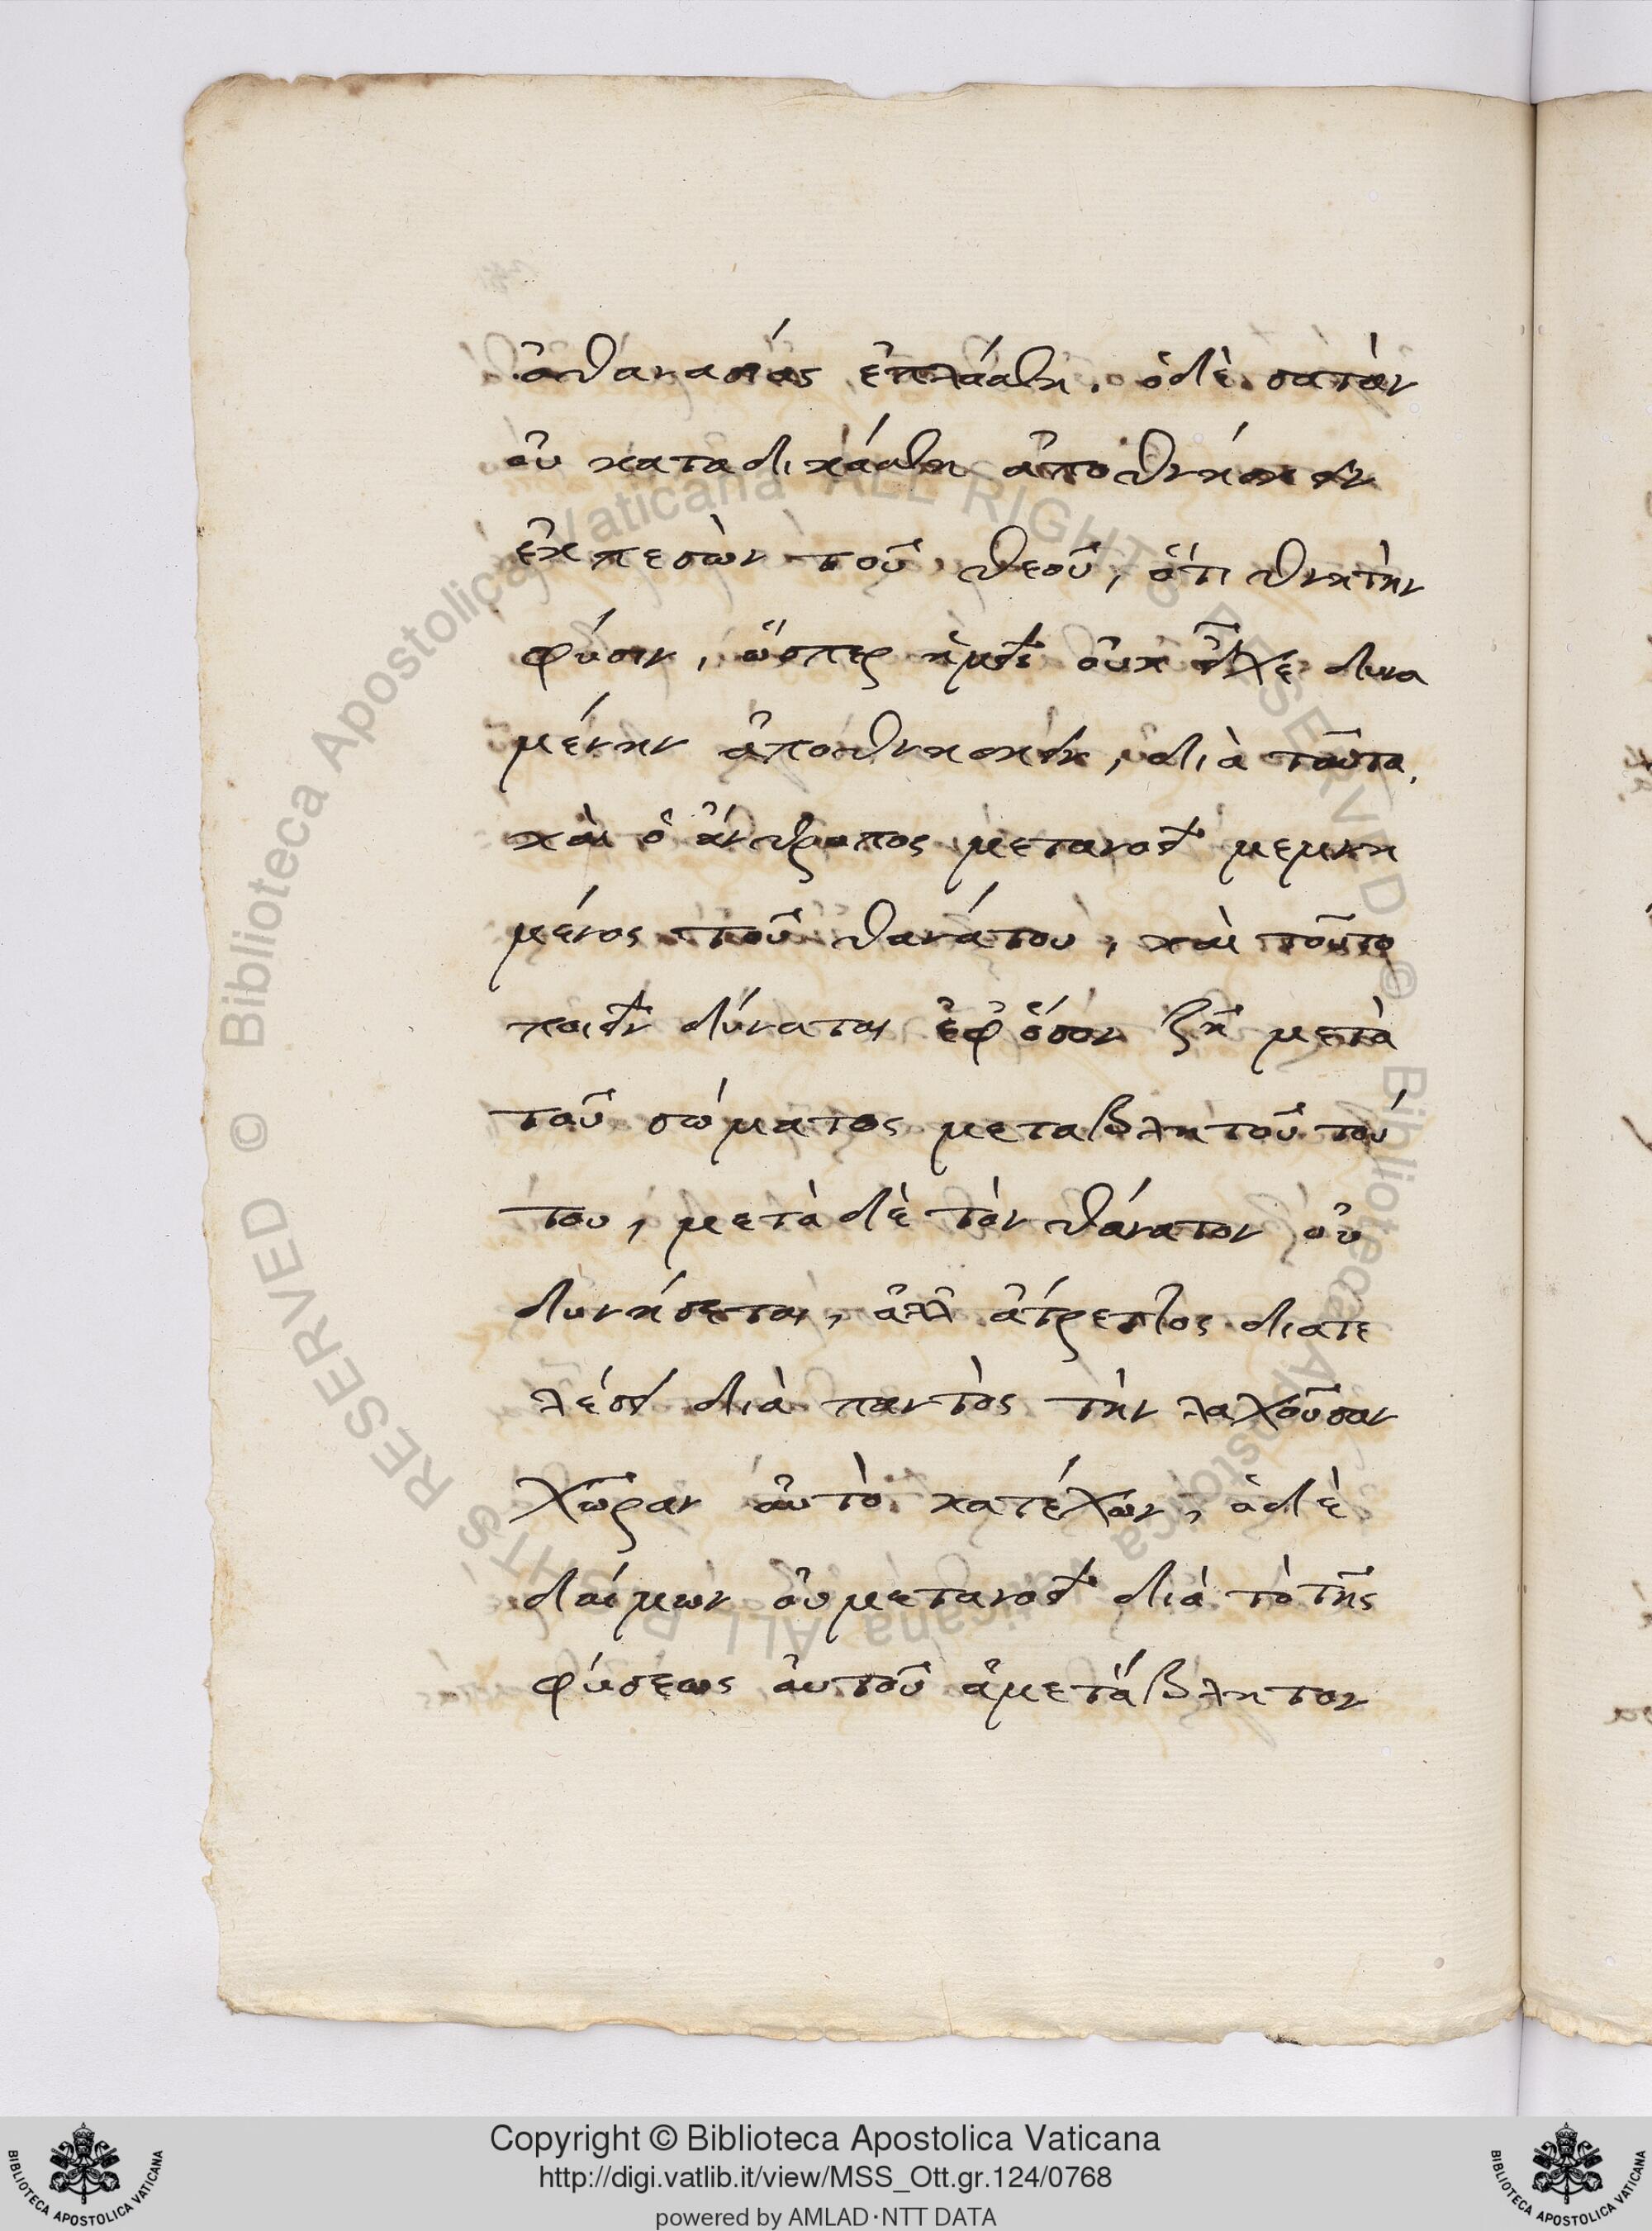 ἀθανασίας ἐπλάσθη. ὁ δὲ σατὰν
οὐ κατα δικάσθη ἀποθνήσκειν
ἐκπεσὼν τοῦ θεοῦ, ὅτι θνητὴν
φύσιν, ὥσπερ ἡμεῖς οὐκ εἶχε δυνα
μένην ἀποθνησκεῖν, διὰ ταῦτα,
καὶ ὁ ἄνθρωπος μετανοεῖ μεμνη
μένος τοῦ θανάτου, καὶ τοῦτο
ποιεῖν δύναται ἐφ ὅσον ζῆ μετὰ
τοῦ σώματος μεταβλητοῦ τού
του, μετὰ δὲ τὸν θάνατον οὐ
δυνήσεται, ἀλλ ἀτρεπτος διατε
λέσει διὰ παντὸς τὴν λαχοῦσαν
χῶραν αὐτὸ κατέχων, ὁ δὲ
δαίμων οὐ μετανοεῖ διὰ τὸ τῆς
φύσεως αὐτοῦ ἀμετάβλητον
© Biblioteca Apostolica Vaticana ALL RIGHTS RESERVED © Biblioteca Apostolica Vaticana ALL RIGHTS RESERVED
Copyright © Biblioteca Apostolica Vaticana
http://digi.vatlib.it/view/MSS_Ott.gr.124/0768
powered by AMLAD·NTT DATA
BIBLIOTECA APOSTOLICA VATICANA
BIBLIOTECA APOSTOLICA VATICANA